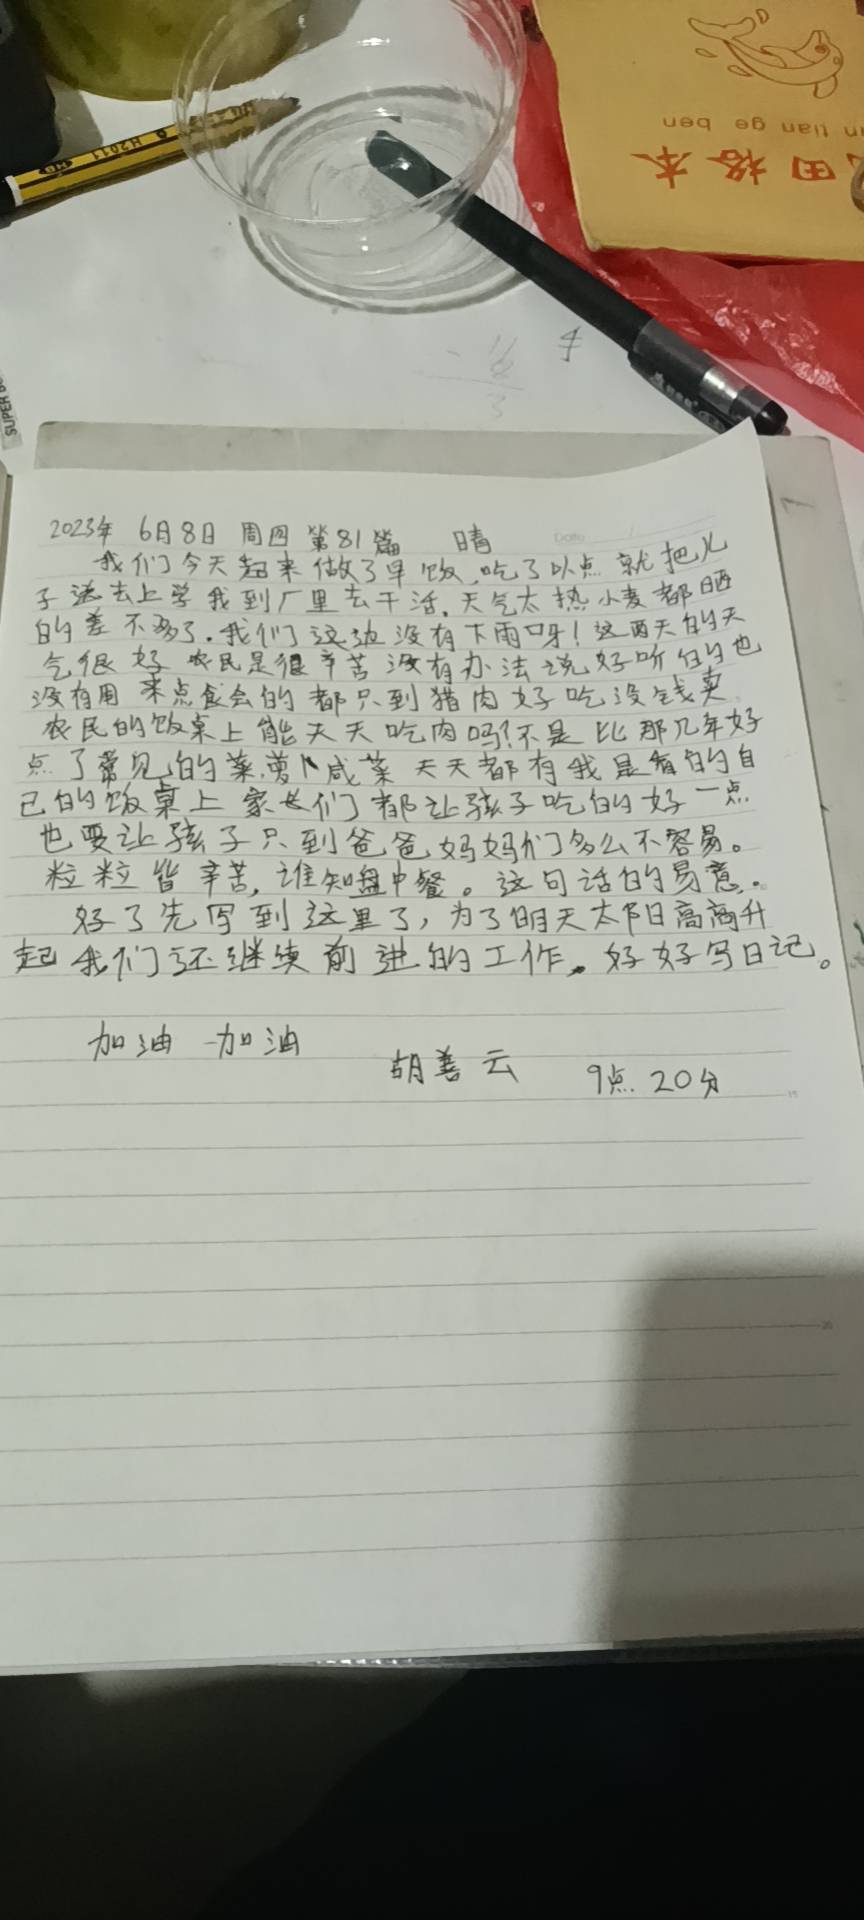 HB
H2011
n tian ge ben
田格本
SUPER B
2023年 6月8日 周四 第81篇 晴
Date
我们今天起来做了早饭,吃了以点就把儿
子送去上学我到厂里去干活.天气太热小麦都晒
的差不多了.我们这边没有下雨呀!这两天的天
气很好农民是很辛苦没有办法说好听的也
没有用来点食会的都只到猎肉好吃没钱卖.
农民的饭桌上能天天吃肉吗?不是比那几年好
点了常见的菜,萝卜咸菜天天都有我是看的自
己的饭桌上家长们都让孩子吃的好一点
也要让孩子只到爸爸妈妈们多么不容易。
粒粒皆辛苦,谁知盘中餐。这句话的易意.
好了先写到这里了,为了明天太阳日高高升
起我们还继续前进的工作.好好写日记。
加油 加油
胡善云 9点20分
15
20